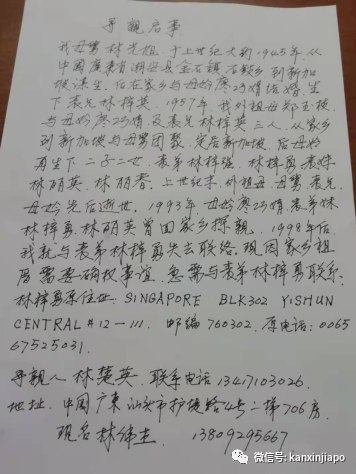 寻亲启事
我母舅林光祖，于上世纪大约1945年，从
中国广东省潮安县金石镇石鼓乡到新加
坡谋生，后在家乡与母妗廖巧情结婚，生
下表兄林梓英，1957年，我外祖母郑玉
与母妗廖巧情及表兄林梓英三人，从家乡
到新加坡与母舅团聚，定居新加坡，后母妗
再生下二子二女，表弟林梓强、林梓勇表妹
林丽英、林丽春。上世纪末，外祖母、母舅、表兄
母妗先后逝世。1993年母妗廖巧情、表弟妹
林梓勇、林丽英曾回家乡探亲，1998年后
我就与表弟林梓勇失去联络。现因家乡祖
厝需要确权事谊，急需与表弟林梓勇联系，
林梓勇原住址：SINGAPORE BLK302 YISHUN
CENTRAL #12—111. 邮编760302，原电话：0065
67525031.
寻亲人 林楚英、联系电话 13417103026
地址：中国广东汕头市护堤路4号二梯706房
现名林伟生 13809295667
微信号：kanxinjiapo